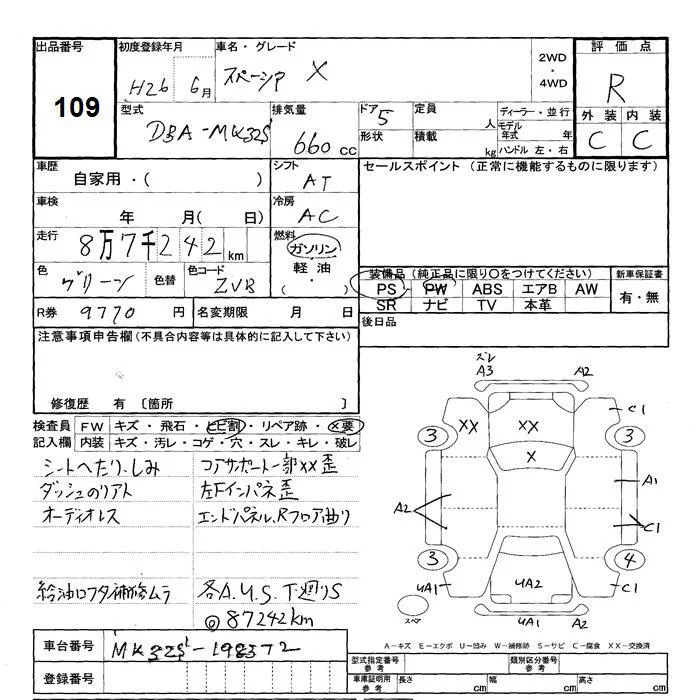 出品番号
109
初度登録年月
H26 6月
車名・グレード
スペーシア X
2WD
・
4WD
評価点
R
外装 内装
C C
型式
DBA-MK32S
排気量
660 cc
ドア 5
形状
定員 人
積載 kg
ディーラー・並行
モデル年式 年
ハンドル 左・右
車歴
自家用・( )
シフト
AT
セールスポイント (正常に機能するものに限ります)
車検
年 月( 日)
冷房
AC
走行
8万7千242km
燃料
ガソリン
軽油
( ・ )
色
グリーン
色替
色コード
ZVB
装備品(純正品に限り○をつけてください)
PS PW ABS エアB AW
SR ナビ TV 本革
新車保証書
有・無
R券 9770 円
名変期限 月 日
後日品
注意事項申告欄(不具合内容等は具体的に記入して下さい)
修復歴 有 〔箇所 〕
検査員記入欄
FW キズ・飛石・ヒビ割・リペア跡・×要
内装 キズ・汚レ・コゲ・穴・スレ・キレ・破レ
シートへたり、しみ
ダッシュのリアト
オーディオレス
給油口フタ補修ムラ
コアサポート一部XX歪
左Fインパネ歪
エンドパネル、Rフロア曲り
各A.U.S.T廻りS
◎87242km
ズレ
A3 A2
C1
XX XX
3 3
X
A1
A2
C1
3 4
UA1 UA2 C1
スペア
UA1 A2
A-キズ E-エクボ U-凹み W-補修跡 S-サビ C-腐食 XX-交換済
車台番号 MK32S-198372
登録番号
型式指定番号 参考
類別区分番号 参考
車庫証明用 参考
長さ cm 幅 cm 高さ cm